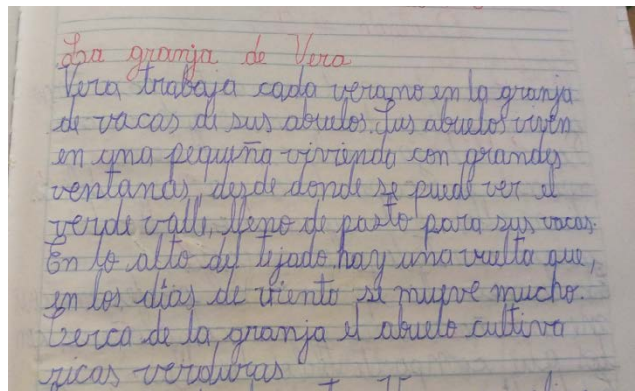 La granja de Vera
Vera trabaja cada verano en la granja
de vacas de sus abuelos. Sus abuelos viven
en una pequeña vivienda con grandes
ventanas, desde donde se puede ver el
verde valle, lleno de pasto para sus vacas.
En lo alto del tejado hay una vuelta que,
en los días de viento se mueve mucho.
Cerca de la granja el abuelo cultiva
ricas verduras